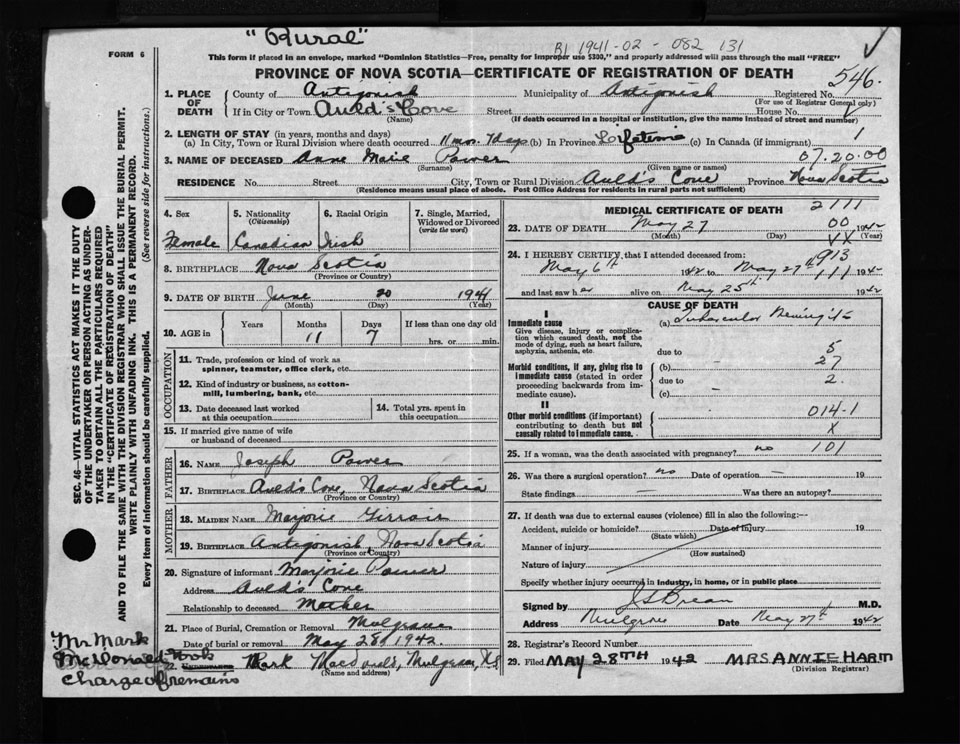 "Rural"
B1 1941-02-082131
FORM 6
This form if placed in an envelope, marked "Dominion Statistics—Free, penalty for improper use $300," and properly addressed will pass through the mail "FREE"
PROVINCE OF NOVA SCOTIA—CERTIFICATE OF REGISTRATION OF DEATH
546.
1. PLACE OF DEATH
County of Antigonish Municipality of Antigonish Registered No.
(For use of Registrar General only)
If in City or Town Auld's Cove Street House No.
(Name) (If death occurred in a hospital or institution, give the name instead of street and number)
2. LENGTH OF STAY (in years, months and days)
(a) In City, Town or Rural Division where death occurred 11 mos. 7 days (b) In Province Lifetime (c) In Canada (if immigrant) 1
07.20.00
3. NAME OF DECEASED Anne Marie Power
(Surname) (Given name or names)
RESIDENCE No. Street City, Town or Rural Division Auld's Cove Province Nova Scotia
(Residence means usual place of abode. Post Office Address for residents in rural parts not sufficient)
SEC. 46—VITAL STATISTICS ACT MAKES IT THE DUTY
OF THE UNDERTAKER OR PERSON ACTING AS UNDER-
TAKER TO OBTAIN ALL THE PARTICULARS REQUIRED
IN THE "CERTIFICATE OF REGISTRATION OF DEATH"
AND TO FILE THE SAME WITH THE DIVISION REGISTRAR WHO SHALL ISSUE THE BURIAL PERMIT.
WRITE PLAINLY WITH UNFADING INK. THIS IS A PERMANENT RECORD.
Every item of information should be carefully supplied. (See reverse side for instructions.)
4. Sex
Female
5. Nationality
(Citizenship)
Canadian
6. Racial Origin
Irish
7. Single, Married,
Widowed or Divorced
(write the word)
8. BIRTHPLACE Nova Scotia
(Province or Country)
9. DATE OF BIRTH June 20 1941
(Month) (Day) (Year)
10. AGE in Years Months Days If less than one day old
11 7 hrs. or min.
OCCUPATION
11. Trade, profession or kind of work as
spinner, teamster, office clerk, etc.
12. Kind of industry or business, as cotton-
mill, lumbering, bank, etc.
13. Date deceased last worked
at this occupation
14. Total yrs. spent in
this occupation
15. If married give name of wife
or husband of deceased
FATHER
16. NAME Joseph Power
17. BIRTHPLACE Auld's Cove, Nova Scotia
(Province or Country)
MOTHER
18. MAIDEN NAME Marjorie Girroir
19. BIRTHPLACE Antigonish, Nova Scotia
(Province or Country)
20. Signature of informant Marjorie Power
Address Auld's Cove
Relationship to deceased Mother
21. Place of Burial, Cremation or Removal Mulgrave
Date of burial or removal May 28, 1942
22. Mark Macdonald, Mulgrave, N.S.
(Name and address)
Mr Mark
McDonald Took
charge of remains
MEDICAL CERTIFICATE OF DEATH 2111
23. DATE OF DEATH May 27 00 1942
(Month) (Day) (Year)
24. I HEREBY CERTIFY, that I attended deceased from:
May 6th 1942 to May 27th 1942
and last saw her alive on May 25th 1942
CAUSE OF DEATH
I
Immediate cause
Give disease, injury or complica-
tion which caused death, not the
mode of dying, such as heart failure,
asphyxia, asthenia, etc.
(a) Tubercular Meningitis
due to 5
Morbid conditions, if any, giving rise to
immediate cause (stated in order
proceeding backwards from im-
mediate cause).
(b) 27
due to 2.
(c)
II
Other morbid conditions (if important)
contributing to death but not
causally related to immediate cause.
014-1
X
25. If a woman, was the death associated with pregnancy? no 101
26. Was there a surgical operation? no Date of operation — 19
State findings — Was there an autopsy?
27. If death was due to external causes (violence) fill in also the following:—
Accident, suicide or homicide? Date of injury 19
(State which)
Manner of injury
(How sustained)
Nature of injury
Specify whether injury occurred in industry, in home, or in public place
Signed by M.D.
Address Mulgrave Date May 27th 1942
28. Registrar's Record Number
29. Filed MAY 28TH 1942 MRS ANNIE HART
(Division Registrar)